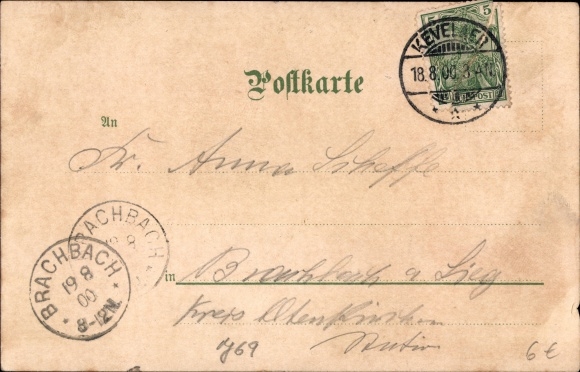 5
REICHSPOST
KEVELAER
18.8.00 8-9N.
Postkarte
An
Fr. Anna Scheffe
BRACHBACH
19 8
BRACHBACH
19 8
00
8-12N.
in Brachbach a Sieg
Kreis Altenkirchen
J69
6€